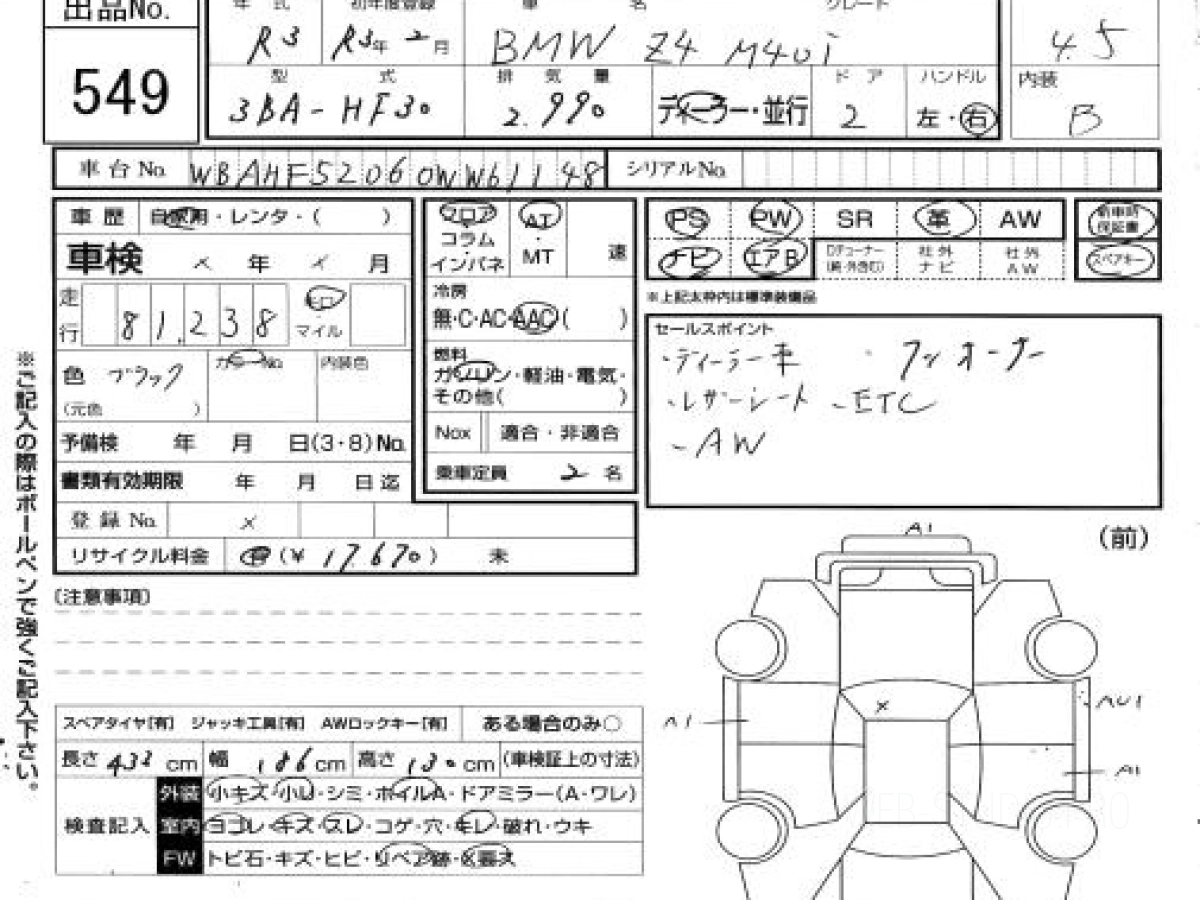 出品No. 年 式 初年度登録 車 名 グレード
R3 R3年 2月 BMW Z4 M40i 4.5
549 型 式 排 気 量 ド ア ハンドル 内装
3BA-HF30 2.990 ディーラー・並行 2 左・右 B
車台No. WBAHF52060WW61148 シリアルNo.
車歴 自家用・レンタ・( )
車検 × 年 × 月
走行 81,238 キロ マイル
色 ブラック カラーNo. 内装色
(元色 )
予備検 年 月 日(3・8)No.
書類有効期限 年 月 日迄
登録No. ×
リサイクル料金 (¥ 17.670) 未
フロア AT
コラム ・ 速
インパネ MT
冷房
無・C・AC・AAC( )
燃料
ガソリン・軽油・電気・
その他( )
Nox 適合・非適合
乗車定員 2 名
PS PW SR 革 AW 新車時保証書
ナビ エアB D/Fチューナー(純・外含む) 社外ナビ 社外AW スペアキー
※上記太枠内は標準装備品
セールスポイント
・ディーラー車 ・ワンオーナー
・レザーシート -ETC
-AW
(注意事項)
スペアタイヤ[有] ジャッキ工具[有] AWロックキー[有] ある場合のみ○
長さ 433 cm 幅 186 cm 高さ 130 cm (車検証上の寸法)
検査記入
外装 小キズ・小U・シミ・ホイルA・ドアミラー(A・ワレ)
室内 ヨゴレ・キズ・スレ・コゲ・穴・キレ・破れ・ウキ
FW トビ石・キズ・ヒビ・リペア跡・X要大
※ご記入の際はボールペンで強くご記入下さい。
A1 (前)
×
A1 AU1
A1